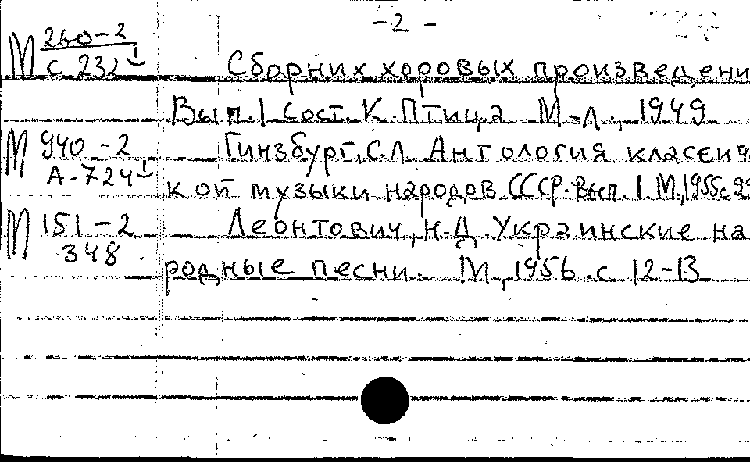 -2-
М 260-2 Сборник хоровых произведени
С 232
Вып.1 Сост. К. Птица М-Л., 1949
М 940-2 Гинзбург, С.Л. Антология класси
А-724
кой музыки народов СССР. Вып. 1 М., 1955 с
М 151-2 Леонтович, Н.Д. Украинские на
348
родные песни. М., 1956. с 12-13